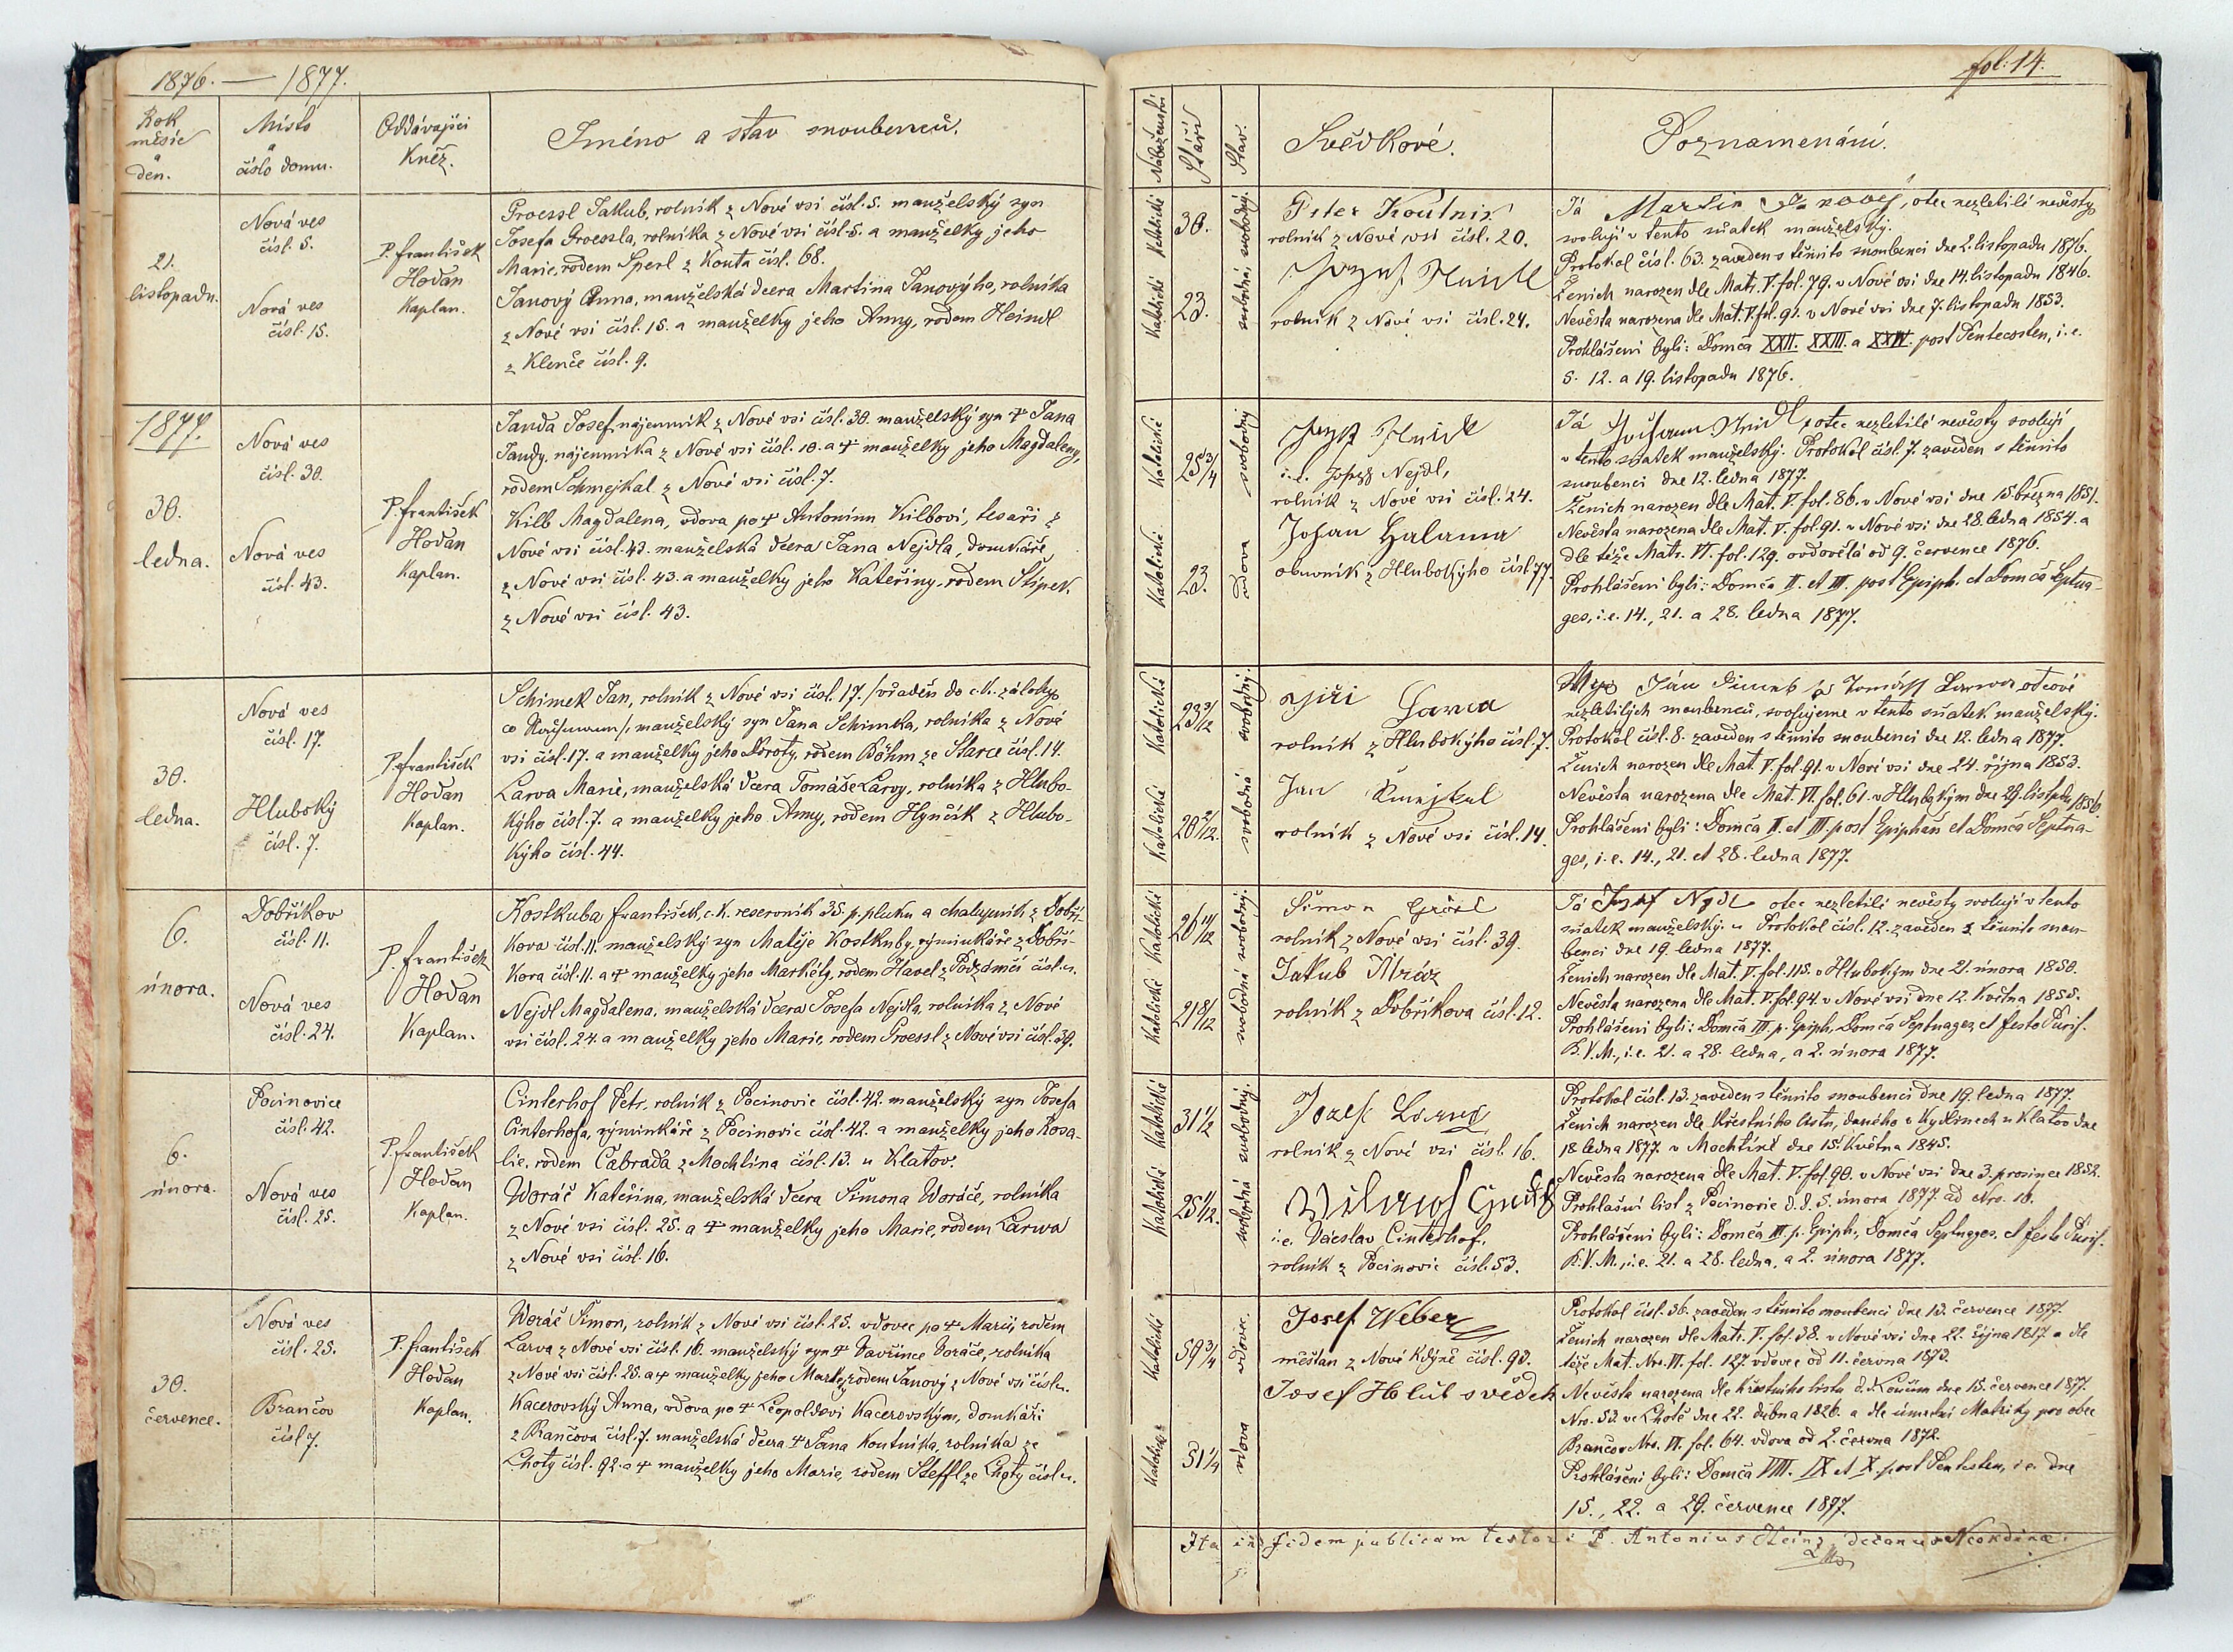 1876. — 1877.
Rok
měsíc
a
den.
Místo
a
číslo domu.
Oddávající
Kněz.
Jméno a stav snoubenců.
21.
listopadu.
Nová ves
čísl. 5.
Nová ves
čísl. 15.
P. František
Hodan
Kaplan.
Groessl Jakub, rolník z Nové vsi čísl. 5. manželský syn
Josefa Groessla, rolníka z Nové vsi čísl. 5. a manželky jeho
Marie, rodem Sperl z Kouta čísl. 68.
Janový Anna, manželská dcera Martina Janovýho, rolníka
z Nové vsi čísl. 15. a manželky jeho Anny, rodem Heindl
z Klenče čísl. 9.
1877.
30.
ledna.
Nová ves
čísl. 30.
Nová ves
čísl. 43.
P. František
Hodan
Kaplan.
Janda Josef, nájemník z Nové vsi čísl. 30. manželský syn † Jana
Jandy, nájemníka z Nové vsi čísl. 10. a † manželky jeho Magdaleny,
rodem Schmejkal z Nové vsi čísl. 7.
Kilb Magdalena, vdova po † Antonínu Kilbovi, tesaři z
Nové vsi čísl. 43. manželská dcera Jana Nejdla, domkáře
z Nové vsi čísl. 43. a manželky jeho Kateřiny, rodem Štípek
z Nové vsi čísl. 43.
30.
ledna.
Nová ves
čísl. 17.
Hluboký
čísl. 7.
P. František
Hodan
Kaplan.
Schimek Jan, rolník z Nové vsi čísl. 17. /vřaděn do c. k. zálohy
co /, manželský syn Jana Schimka, rolníka z Nové
vsi čísl. 17. a manželky jeho Doroty, rodem Böhm ze Starce čísl. 14.
Larva Marie, manželská dcera Tomáše Larvy, rolníka z Hlubo-
kýho čísl. 7. a manželky jeho Anny, rodem Hynčík z Hlubo-
kýho čísl. 44.
6.
února.
Dobříkov
čísl. 11.
Nová ves
čísl. 24.
P. František
Hodan
Kaplan.
Kostkuba František, c. k. reservník 35. p. pluku a chalupník z Dobří-
kova čísl. 11. manželský syn Matěje Kostkuby, výminkáře z Dobří-
kova čísl. 11. a † manželky jeho Markéty, rodem Havel z Podzámčí čísl. u.
Nejdl Magdalena, manželská dcera Josefa Nejdla, rolníka z Nové
vsi čísl. 24. a manželky jeho Marie, rodem Groessl z Nové vsi čísl. 39.
6.
února.
Pocinovice
čísl. 42.
Nová ves
čísl. 25.
P. František
Hodan
Kaplan.
Cinterhof Petr, rolník z Pocinovic čísl. 42. manželský syn Josefa
Cinterhofa, výminkáře z Pocinovic čísl. 42. a manželky jeho Rosa-
lie, rodem Cabrada z Mochtína čísl. 13. u Klatov.
Woráč Kateřina, manželská dcera Šimona Woráče, rolníka
z Nové vsi čísl. 25. a † manželky jeho Marie, rodem Larwa
z Nové vsi čísl. 16.
30.
července.
Nová ves
čísl. 25.
Brančov
čísl 7.
P. František
Hodan
Kaplan.
Woráč Šimon, rolník z Nové vsi čísl. 25. vdovec po † Marii, rodem
Larva z Nové vsi čísl. 16. manželský syn † Vavřince Voráče, rolníka
z Nové vsi čísl. 25. a † manželky jeho Markéty, rodem Janový z Nové vsi čísl. u.
Kacerovský Anna, vdova po † Leopoldovi Kacerovským, domkáři
z Brančova čísl. 7. manželská dcera † Jana Koutníka, rolníka ze
Lhoty čísl. 92. a † manželky jeho Marie, rodem Steffl ze Lhoty čísl. u.
fol: 14.
Náboženství
Stáří
Stav.
Svědkové.
Poznamenání.
Katolické
30.
svobodný.
Katolické
23.
svobodná
Peter Koutnik
rolník z Nové vsi čísl. 20.
rolník z Nové vsi čísl. 24.
Já Martin Janovej, otec nezletilé nevěsty
svoluji v tento sňatek manželský.
Protokol čísl. 63. zaveden s těmito snoubenci dne 2. listopadu 1876.
Ženich narozen dle Matr. V. fol. 79. v Nové vsi dne 14. listopadu 1846.
Nevěsta narozena dle Mat. V. fol. 91. v Nové vsi dne 7. listopadu 1853.
Prohlášeni byli: Domca XXII. XXIII. a XXIV. post Pentecosten, i. e.
5. 12. a 19. listopadu 1876.
Katolické
25 3/4
svobodný
Katolické
23.
vdova
i. e. Josef Nejdl,
rolník z Nové vsi čísl. 24.
Johan Halama
obuvník z Hlubokýho čísl 77.
Já Johann Neidl, otec nezletilé nevěsty svoluji
v tento sňatek manželský. Protokol čísl. 7. zaveden s těmito
snoubenci dne 12. ledna 1877.
Ženich narozen dle Mat. V. fol. 86. v Nové vsi dne 15. března 1851.
Nevěsta narozena dle Mat. V. fol. 91. v Nové vsi dne 28. ledna 1854. a
dle téže Matr. VI. fol. 129. ovdovělá od 9. července 1876.
Prohlášeni byli: Domca II. et III. post Epiph. et Domca Septua-
ges, i. e. 14., 21. a 28. ledna 1877.
Katolické
23 3/12
svobodný.
Katolické
20 2/12.
svobodná
Jiří Larva
rolník z Hlubokýho čísl. 7.
Jan Šmejkal
rolník z Nové vsi čísl. 14.
My Ján Šimek a Tomáš Larva otcové
nezletilých snoubenců, svolujeme v tento sňatek manželský.
Protokol čísl. 8. zaveden s těmito snoubenci dne 12. ledna 1877.
Ženich narozen dle Mat. V. fol. 91. v Nové vsi dne 24. října 1853.
Nevěsta narozena dle Mat. VI. fol. 61. v Hlubokým dne 29. listopadu 1856.
Prohlášeni byli: Domca II. et III. post Epiphan et Domca Septua-
ges, i. e. 14., 21. et 28. ledna 1877.
Katolické
26 11/12
svobodný.
Katolické
21 8/12
svobodná
Šimon Grösl
rolník z Nové vsi čísl. 39.
Jakub Mráz
rolník z Dobříkova čísl. 12.
Já Josef Nejdl otec nezletilé nevěsty svoluji v tento
sňatek manželský. Protokol čísl. 12. zaveden s těmito snou-
benci dne 19. ledna 1877.
Ženich narozen dle Mat. V. fol. 115. v Hlubokým dne 21. února 1850.
Nevěsta narozena dle Mat. V. fol. 94. v Nové vsi dne 12. května 1855.
Prohlášeni byli: Domca III. p. Epiph. Domca Septuages, et festo Purif.
B. V. M., i. e. 21. a 28. ledna, a 2. února 1877.
Katolické
31 1/2
svobodný.
Katolické
25 1/12.
svobodná
Jozef Larva
rolník z Nové vsi čísl. 16.
i. e. Václav Cinterhof.
rolník z Pocinovic čísl. 53.
Protokol čísl. 13. zaveden s těmito snoubenci dne 19. ledna 1877.
Ženich narozen dle křestního listu, daného v Kydlinech u Klatov dne
18 ledna 1877. v Mochtíně dne 15. května 1845.
Nevěsta narozena dle Mat. V. fol. 90. v Nové vsi dne 3. prosince 1852.
Prohlašní list z Pocinovic d. d. 5. února 1877. ad Nro. 16.
Prohlášeni byli: Domca III. p. Epiph., Domca Septuages. et festo Purif.
B. V. M., i. e. 21. a 28. ledna, a 2. února 1877.
Katolické
59 3/4
vdovec.
Katolické
51 1/4
vdova
Josef Weber
měšťan z Nové Kdýně čísl. 93.
Josef Holub svědek
Protokol čísl. 36. zaveden s těmito snoubenci dne 13. července 1877.
Ženich narozen dle Matr. V. fol. 38. v Nové vsi dne 22. října 1817 a dle
téže Mat. Nro. VI. fol. 127. vdovec od 11. června 1873.
Nevěsta narozena dle křestního listu d. d. Loučim dne 15. července 1877.
Nro. 53. ve Lhotě dne 22. dubna 1826. a dle úmrtní Matriky pro obec
Brančov Nro. VI. fol. 64. vdova od 2. června 1872.
Prohlášeni byli: Domca VIII. IX et X. post Pentecosten, i. e. dne
15., 22. a 29. července 1877.
Ita in fidem publicam testor: P. Antonius Heinz, decanus Neokdinae.